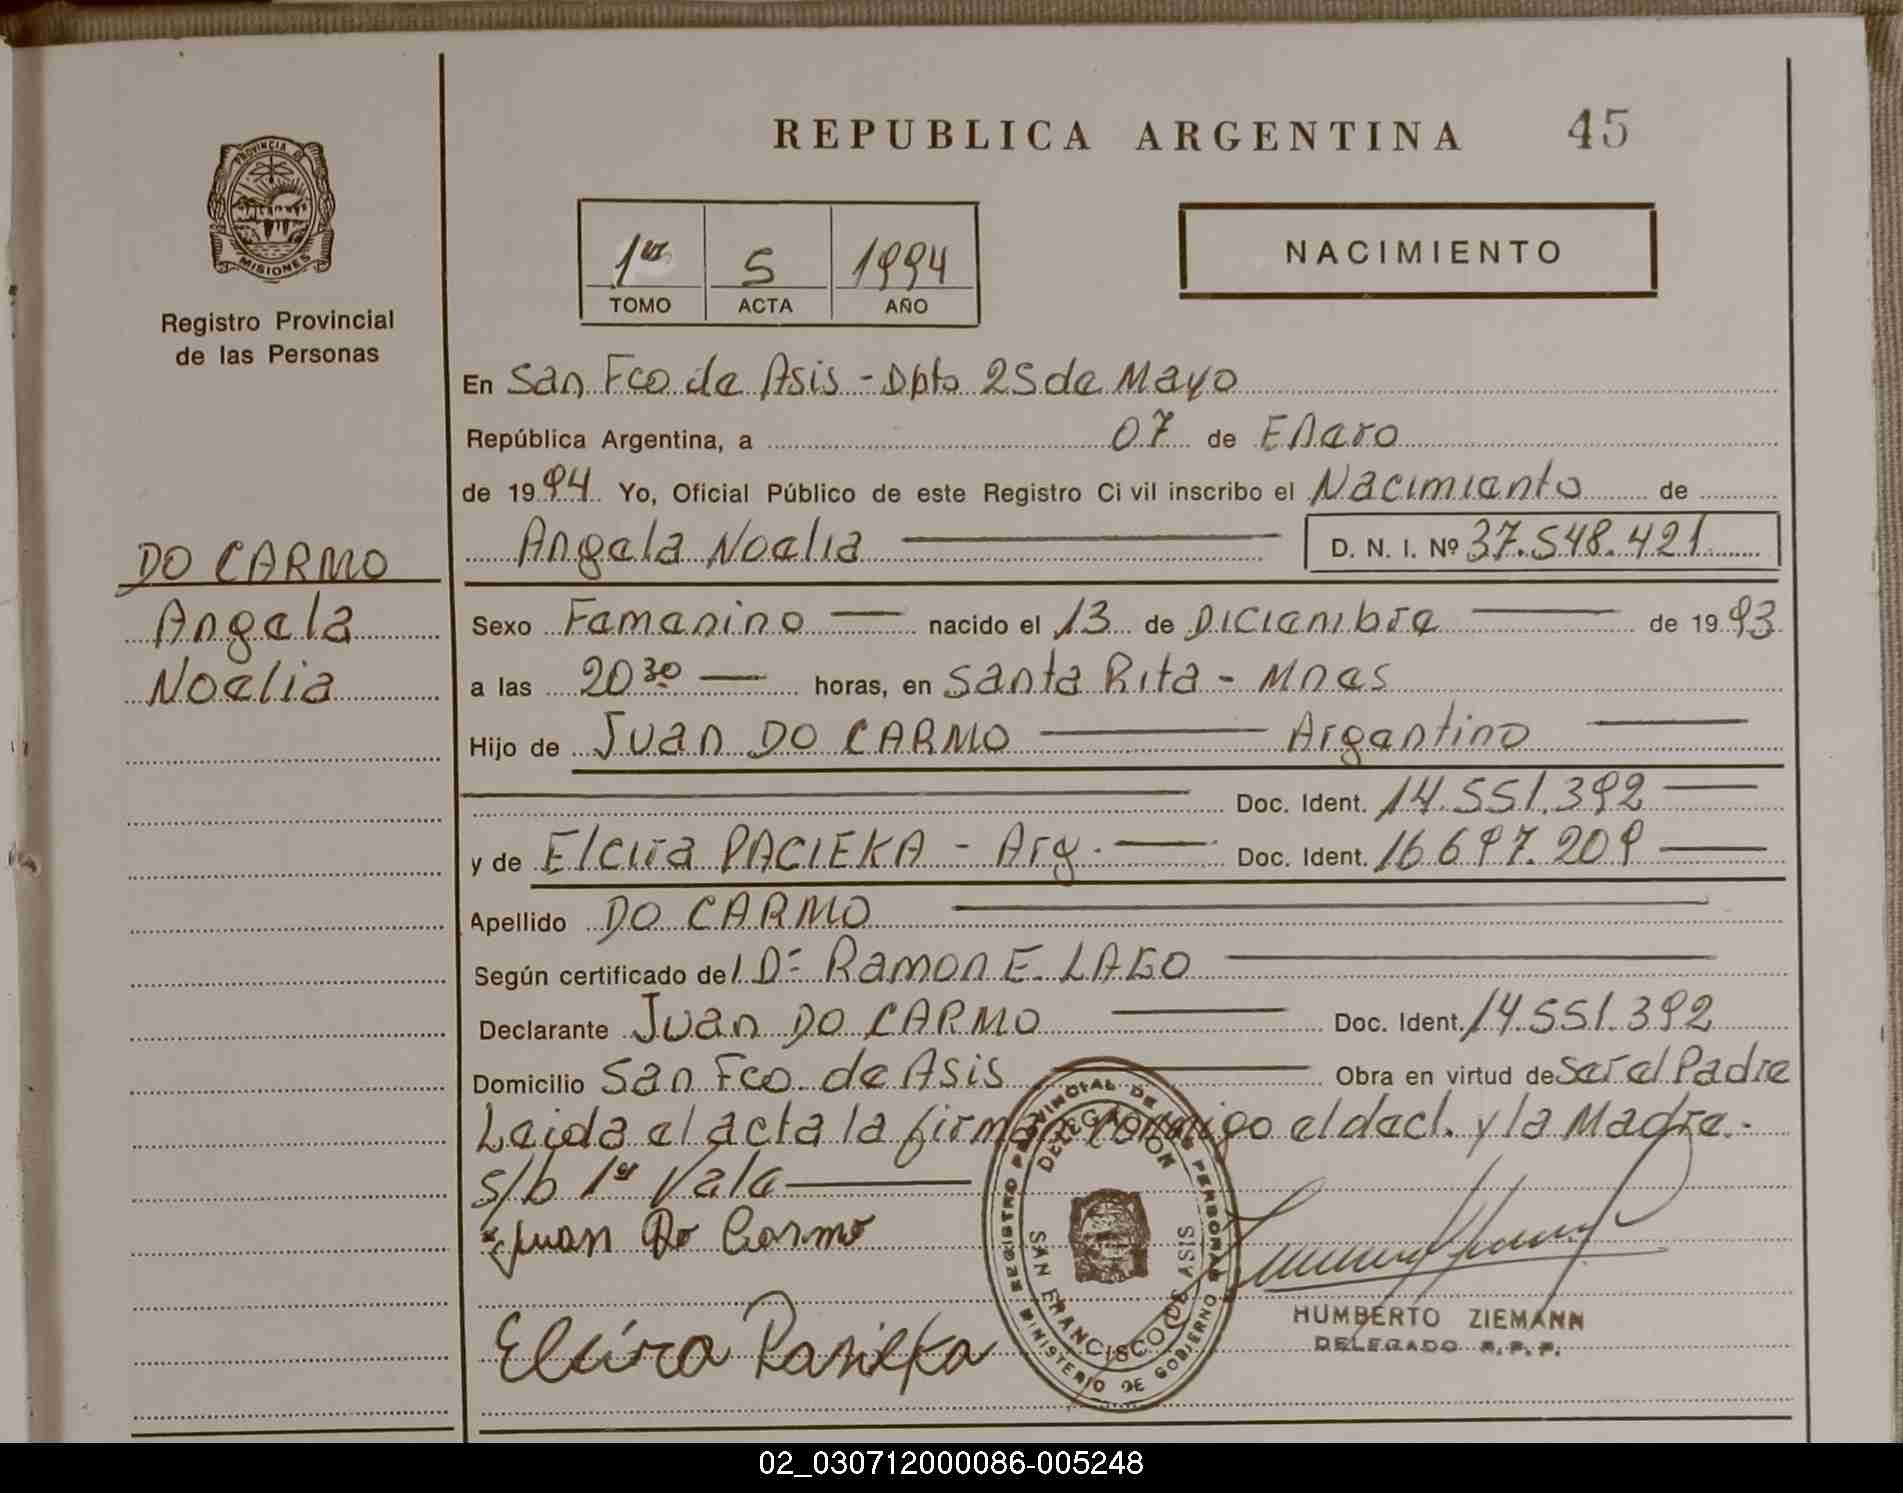 REPUBLICA ARGENTINA 45
PROVINCIA DE
MISIONES
Registro Provincial
de las Personas
1er S 1994
TOMO ACTA AÑO
NACIMIENTO
En San Fco de Asis - Dpto 25 de Mayo
República Argentina, a 07 de Enero
de 1994 Yo, Oficial Público de este Registro Civil inscribo el Nacimiento de
Angela Noelia D. N. I. Nº 37.548.421
DO CARMO
Angela
Noelia
Sexo Femenino nacido el 13 de Diciembre de 1993
a las 20 30 horas, en Santa Rita - Mnes
Hijo de Juan DO CARMO Argentino
Doc. Ident. 14.551.392
y de Elcira PACIEKA - Arg. Doc. Ident. 16.697.209
Apellido DO CARMO
Según certificado del Dr Ramon E. LAGO
Declarante Juan DO CARMO Doc. Ident. 14.551.392
Domicilio San Fco. de Asis Obra en virtud de ser el Padre
Leida el acta la firman conmigo el decl. y la Madre.-
s/b 1er Vale
Juan Do Carmo
Elcira
REGISTRO PROVINCIAL DE LAS PERSONAS
MINISTERIO DE GOBIERNO
DELEGACION
SAN FRANCISCO DE ASIS
HUMBERTO ZIEMANN
DELEGADO R.P.P.
02_030712000086-005248